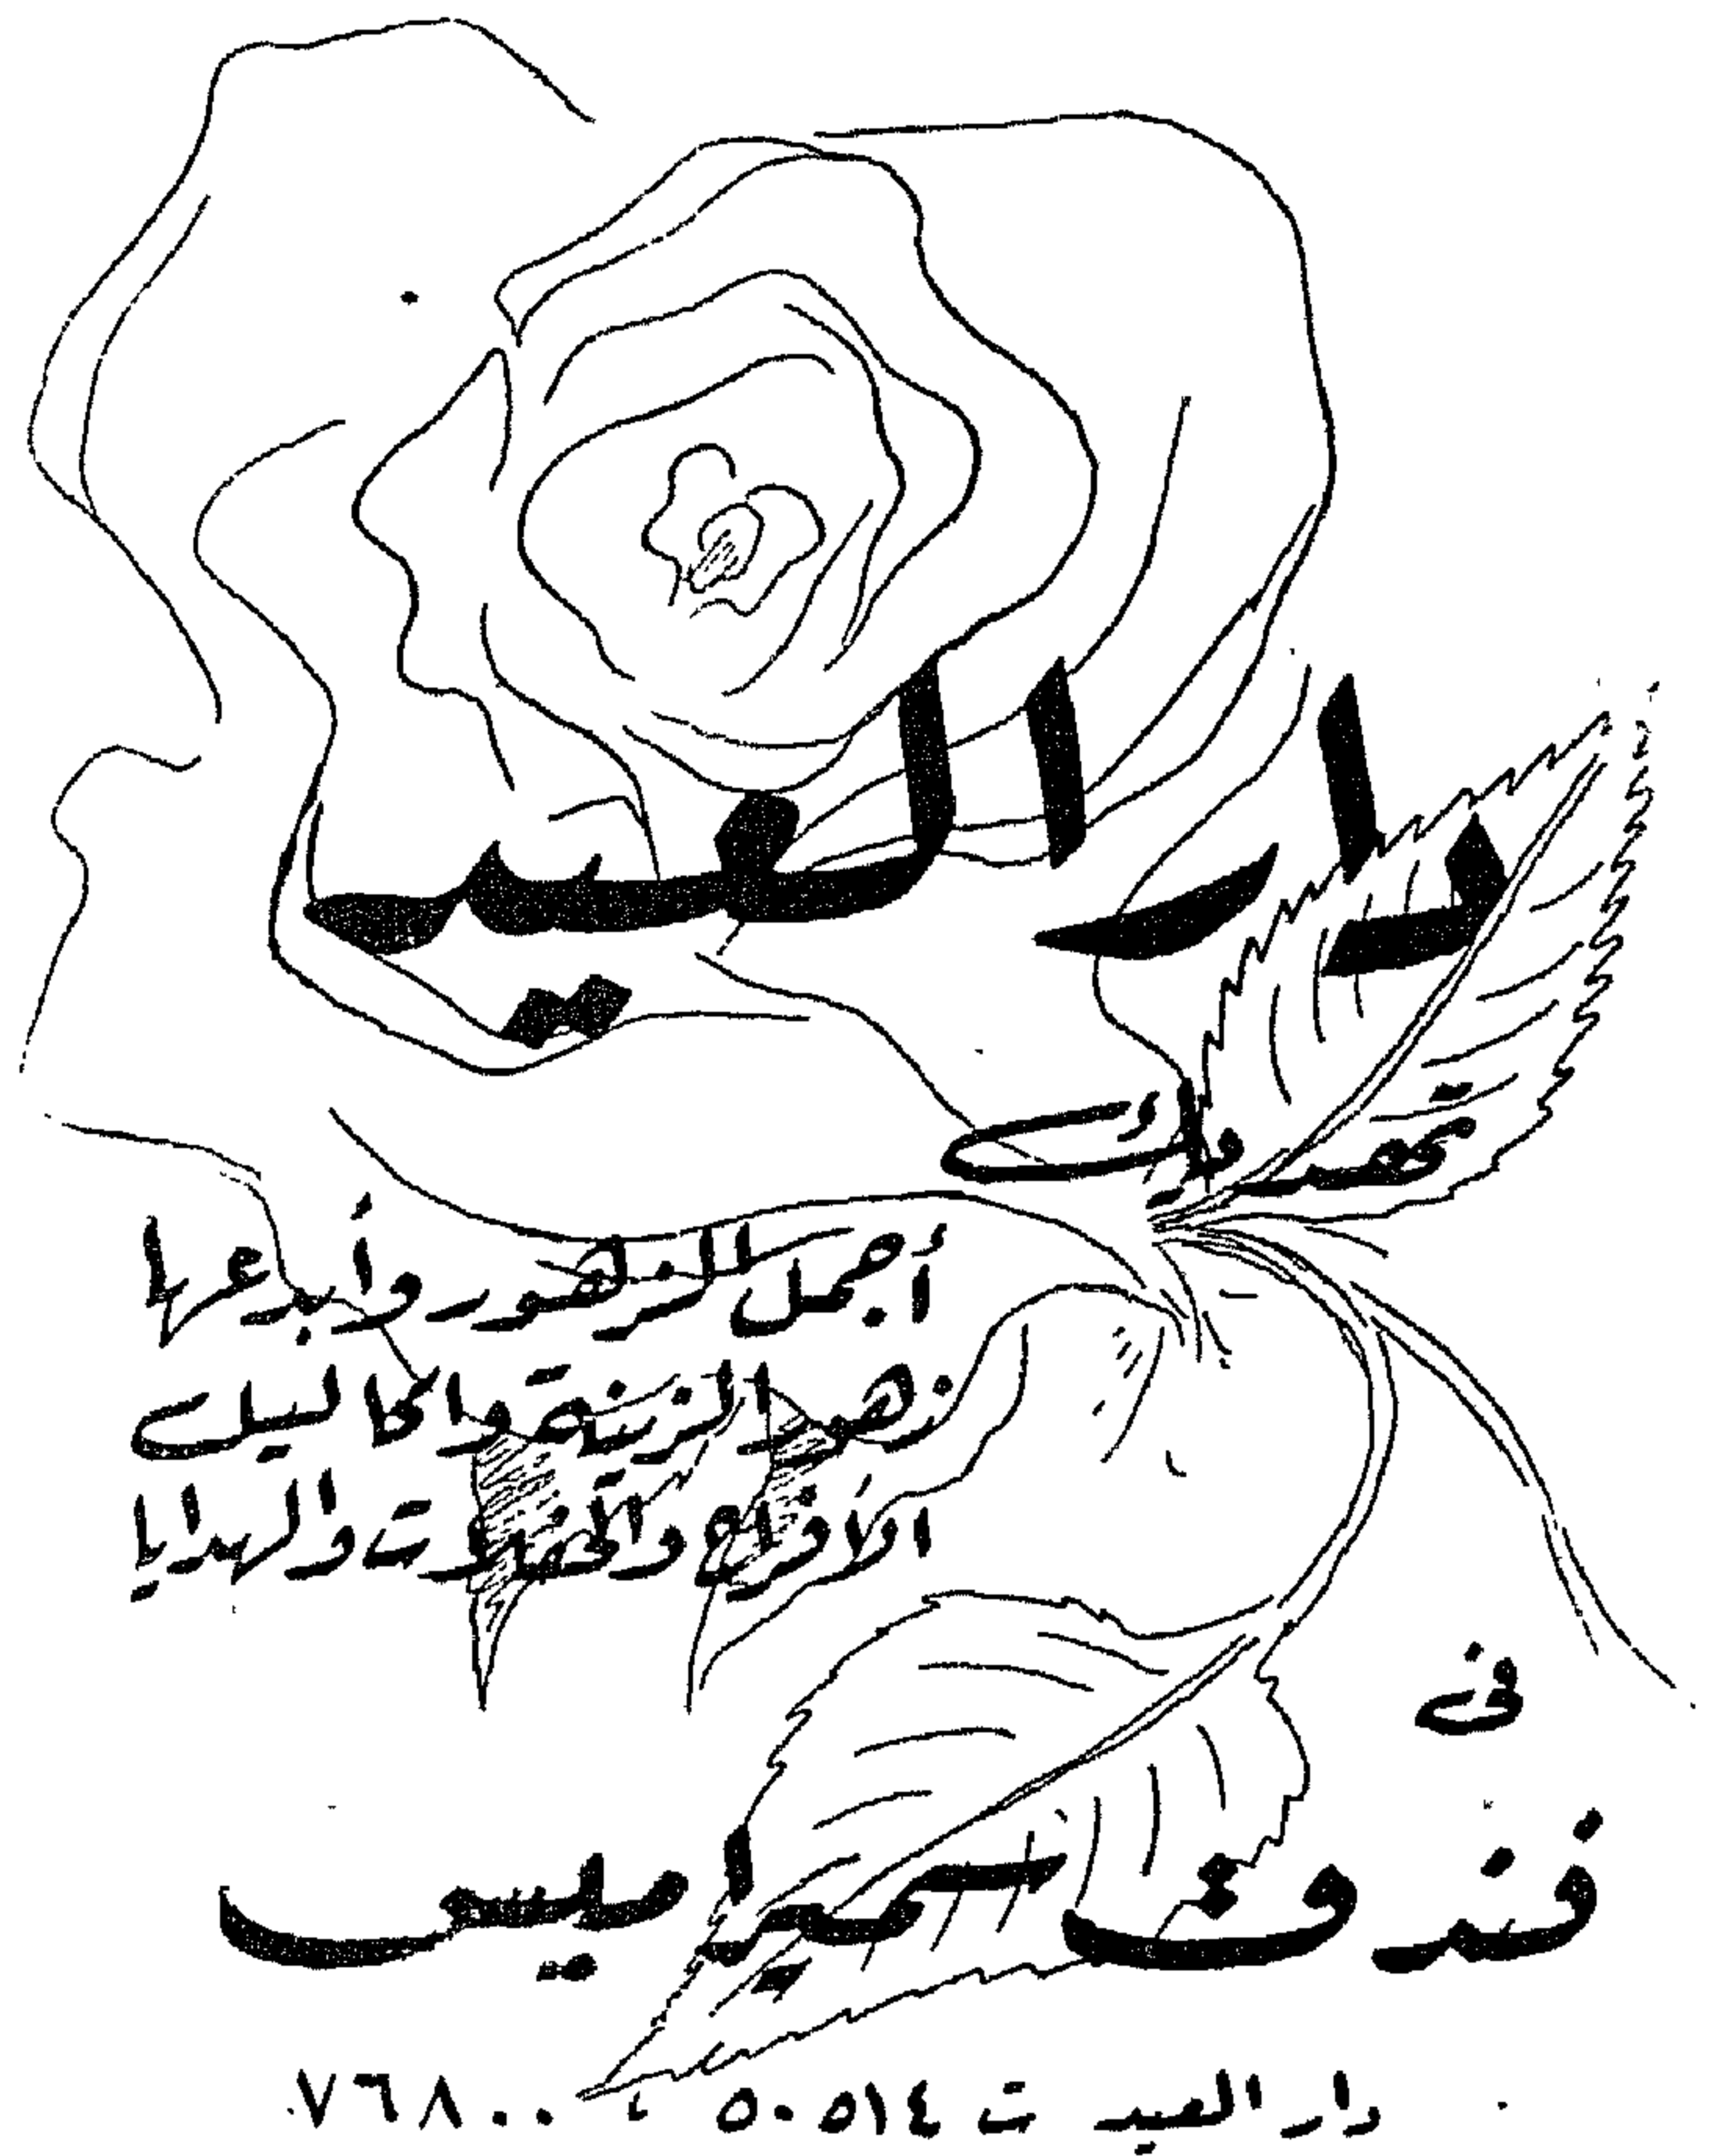 دار العيد
أجمل الزهور وأبدعها
زهور الزينة وأكاليل
الأفراح والهدايا
في
فندق سميراميس
دار العيد ت ٥٠٥١٤ ، ٧٦٨٠٠